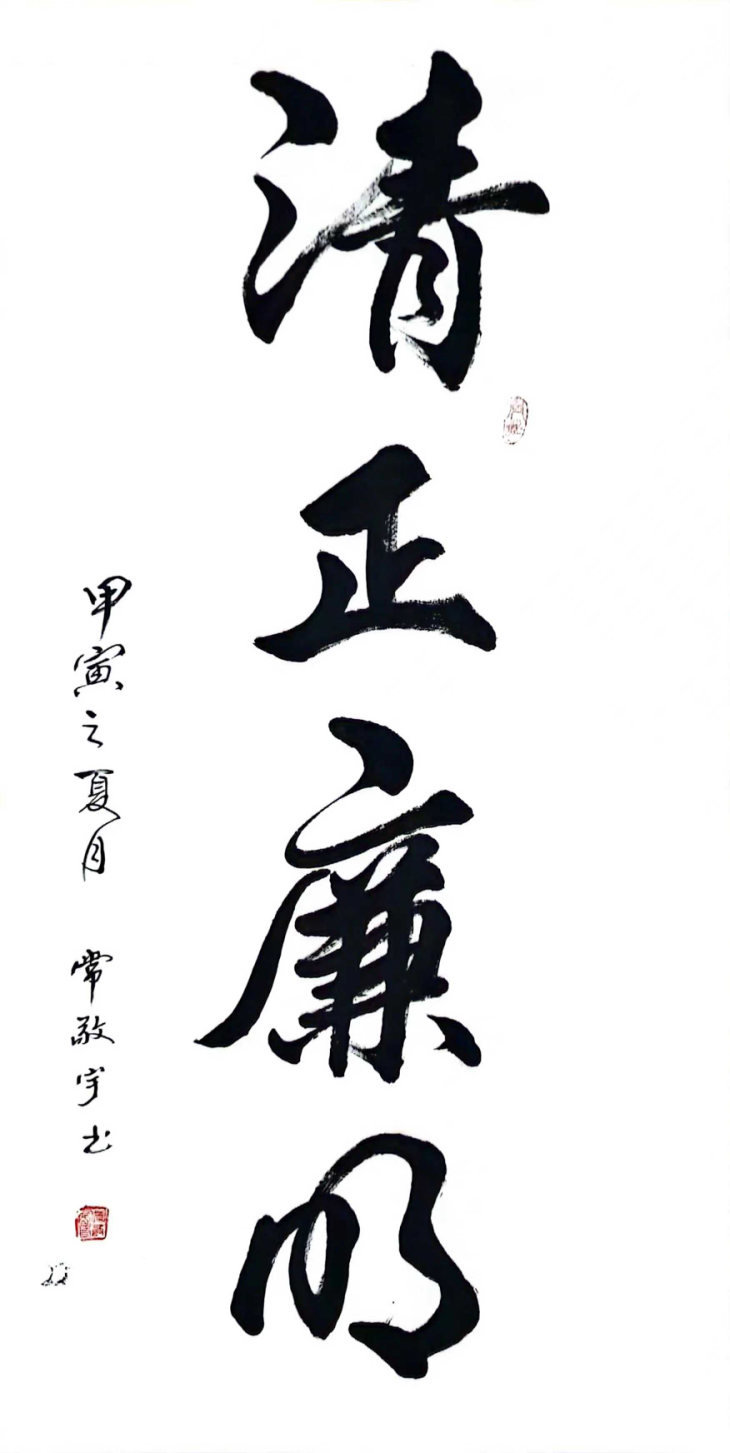 清正廉明
甲寅之夏月 常敬宇书